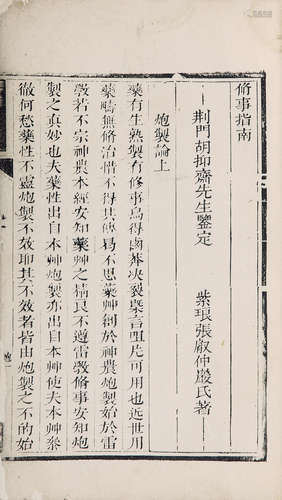 脩事指南
荆門胡抑齋先生鑒定　紫琅張叡仲巖氏著
炮製論上
藥有生熟製有修事烏得鹵莽決裂槩言㕮片可用也近世用
藥疇無脩治惜不得其傳曷不思藥艸創於神農炮製始於雷
斆若不宗神農本經安知藥艸之楛良不遵雷斆脩事安知炮
製之真妙也夫藥性出自本艸炮製亦出自本艸使夫本艸叅
徹何愁藥性不靈炮製不效耶其不效者皆由炮製之不的始